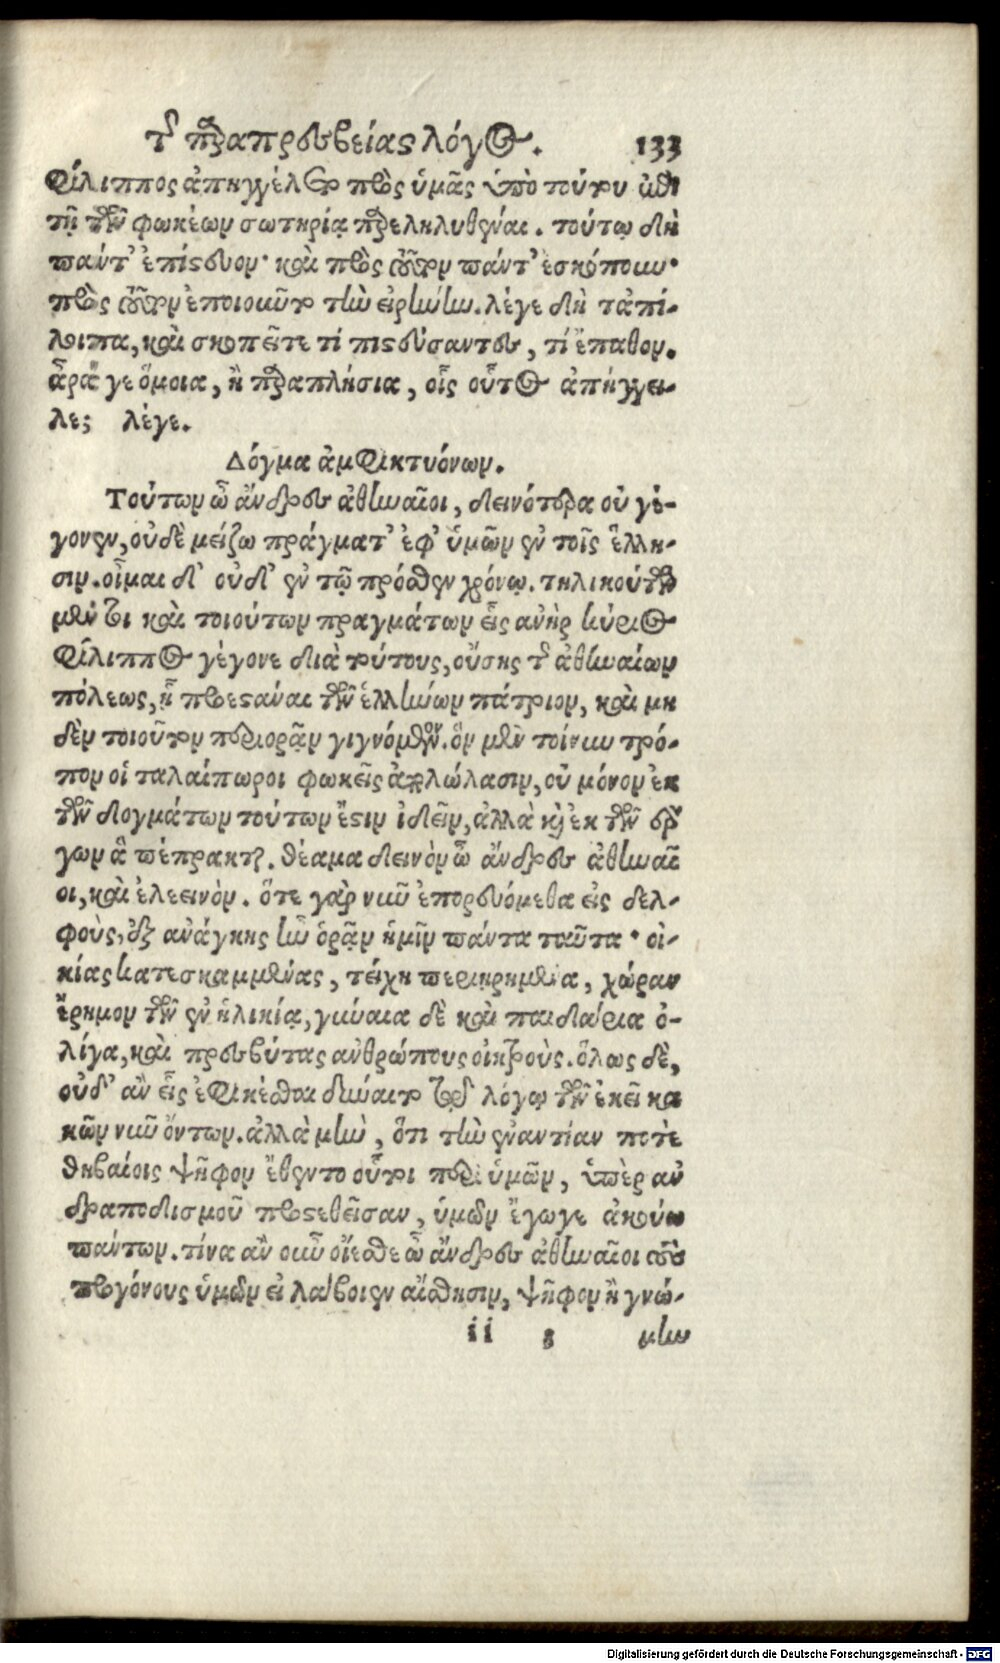 τῆς παραπρεσβείας λόγος. 133
Φίλιππος ἀπηγγέλλετο πρὸς ὑμᾶς ὑπὸ τούτου ἐπὶ
τῇ τῶν φωκέων σωτηρίᾳ παρεληλυθέναι. τούτῳ δὴ
πάντ' ἐπίστευον· καὶ πρὸς τοῦτον πάντ' ἐσκόπουν·
πρὸς τοῦτον ἐποιοῦντο τὴν εἰρήνην. λέγε δὴ τἀπί-
λοιπα, καὶ σκοπεῖτε τί πιστεύσαντες, τί ἔπαθον.
ἆρά γε ὅμοια, ἢ παραπλήσια, οἷς οὗτος ἀπήγγει-
λε; λέγε.
Δόγμα ἀμφικτυόνων.
Τούτων ὦ ἄνδρες ἀθηναῖοι, δεινότερα οὐ γέ-
γονεν, οὐδὲ μείζω πράγματ' ἐφ' ὑμῶν ἐν τοῖς ἕλλη-
σιν. οἶμαι δ' οὐδ' ἐν τῷ πρόσθεν χρόνῳ. τηλικούτων
μέντοι καὶ τοιούτων πραγμάτων εἷς ἀνὴρ κύριος
Φίλιππος γέγονε διὰ τούτους, οὔσης τῆς ἀθηναίων
πόλεως, ᾗ προεστάναι τῶν ἑλλήνων πάτριον, καὶ μη
δὲν τοιοῦτον περιορᾷν γιγνόμενον. ὃν μὲν τοίνυν τρό-
πον οἱ ταλαίπωροι φωκεῖς ἀπολώλασιν, οὐ μόνον ἐκ
τῶν δογμάτων τούτων ἔστιν ἰδεῖν, ἀλλὰ καὶ ἐκ τῶν ἔρ
γων ἃ πέπρακται. θέαμα δεινὸν ὦ ἄνδρες ἀθηναῖ
οι, καὶ ἐλεεινόν. ὅτε γὰρ νῦν ἐπορευόμεθα εἰς δελ-
φοὺς, ἐξ ἀνάγκης ἦν ὁρᾷν ἡμῖν πάντα ταῦτα· οἰ-
κίας κατεσκαμμένας, τείχη περιῃρημένα, χώραν
ἔρημον τῶν ἐν ἡλικίᾳ, γύναια δὲ καὶ παιδάρια ὀ-
λίγα, καὶ πρεσβύτας ἀνθρώπους οἰκτροὺς. ὅλως δὲ,
οὐδ' ἂν εἷς ἐφικέσθαι δύναιτο τῷ λόγῳ τῶν ἐκεῖ κα
κῶν νῦν ὄντων. ἀλλὰ μὴν, ὅτι τὴν ἐναντίαν ποτὲ
θηβαίοις ψῆφον ἔθεντο οὗτοι περὶ ὑμῶν, ὑπὲρ ἀν
δραποδισμοῦ προστεθεῖσαν, ὑμῶν ἔγωγε ἀκούω
πάντων. τίνα ἂν οὖν οἴεσθε ὦ ἄνδρες ἀθηναῖοι τοὺς
προγόνους ὑμῶν εἰ λάβοιεν αἴσθησιν, ψῆφον ἢ γνώ-
ii 3 μην